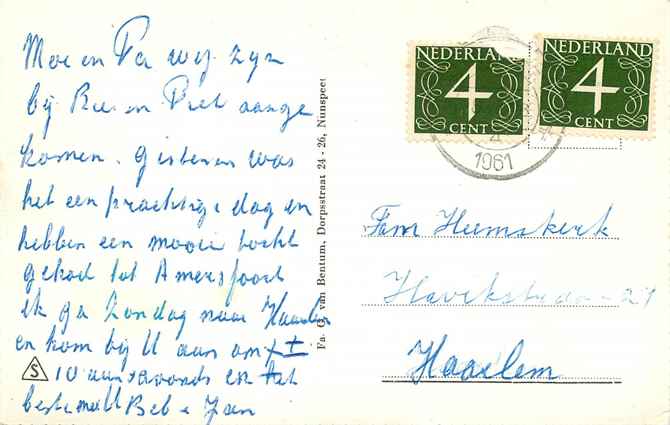 Moe en Pa wij zijn
bij Bee en Piet aange
komen. gisteren was
het een prachtige dag en
hebben een mooie tocht
gehad tot Amersfoort
ik ga Zondag naar Haarlem
en kom bij U aan om ±
10 uur savonds en
Beb e Jan
Fa. G. van Bentum, Dorpsstraat 24 - 26, Nunspeet
S
NEDERLAND
4
CENT
NEDERLAND
4
CENT
1961
Fam Heemskerk
Havikstraat - 27
Haarlem